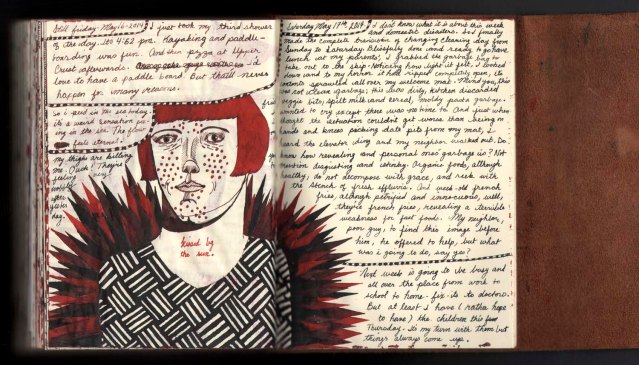 Still Friday May 16 - 2014
I just took my third shower
of the day. It's 4:52 pm. Kayaking and paddle-
boarding was fun. And then pizza at Upper
Crust afterwards. I'd
love to have a paddle board. But that'll never
happen for many reasons.
So I peed in the sea today.
it's a weird sensation
ing in the sea. The flow
feels eternal!
my thighs are killing
me. Ouch! They're
feeling very
wobbly
after
day.
kissed by
the sun.
Saturday May 17th 2014
I don't know what it is about this week
and domestic disasters. So I finally
made the complex decision of changing cleaning day from
Sunday to Saturday. Blissfully done and ready to go have
lunch at my parents', I grabbed the garbage bag to
take out to the skip. Noticing how light it felt, I looked
down and to my horror, it had ripped completely open, its
contents sprawled all over my welcome mat. Mind you, this
was not clean garbage; this was dirty, kitchen discarded
veggie bits, spilt milk and cereal, moldy pasta garbage.
wanted to cry except there was no time to. And just when
thought the situation couldn't get worse than being on
hands and knees picking date pits from my mat, I
heard the elevator ding and my neighbor walked out. Do
know how revealing and personal one's garbage is? Not
mention disgusting and stinky. Organic foods, although
healthy, do not decompose with grace, and reek with
the stench of fresh effluvia. And week-old french
fries, although petrified and innocuous, well,
they're french fries, revealing a terrible
weakness for fast foods. My neighbor,
poor guy, to find this image before
him, he offered to help, but what
was I going to do, say yes?
Next week is going to be busy and
all over the place from work to
school to home - fix-its to doctors.
But at least I have (rather hope
to have) the children this
Thursday. It's my turn with them but
things always come up.